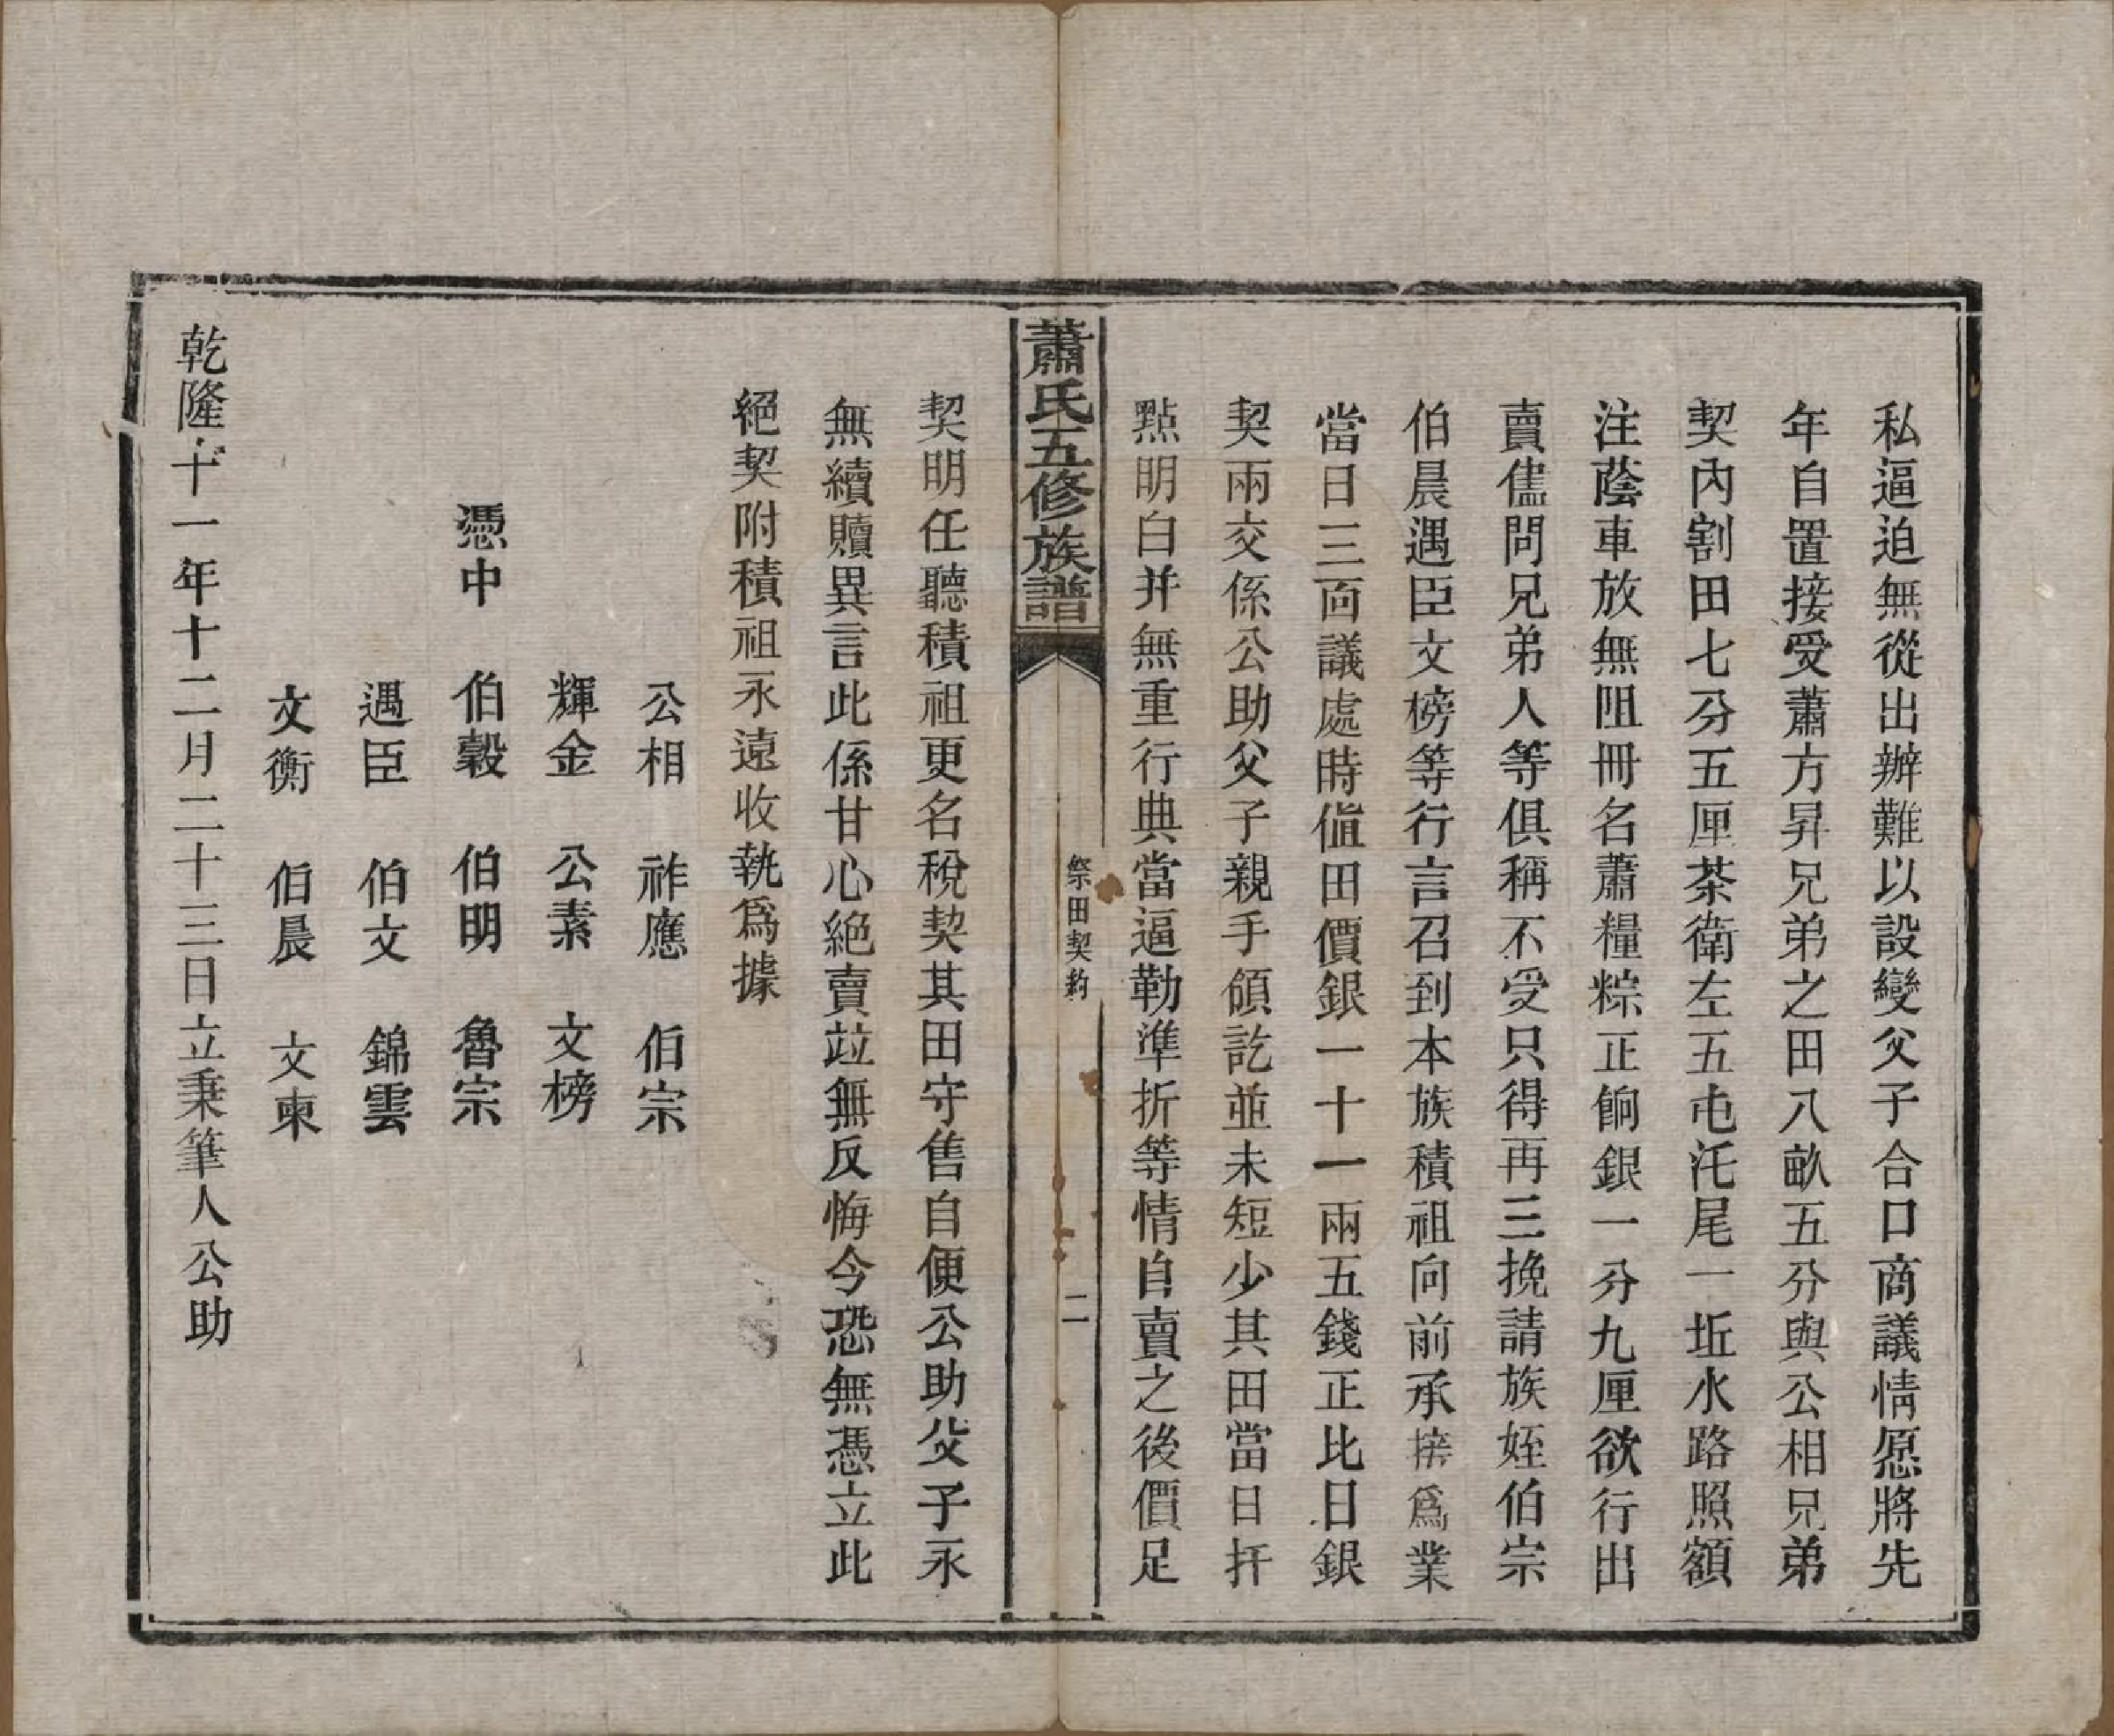 私逼迫無從出辦難以設變父子合口商議情愿將先
年自置接受蕭方昇兄弟之田八畝五分與公相兄弟
契內割田七分五厘茶衛左五屯汑尾一坵水路照額
注蔭車放無阻冊名蕭糧粽正餉銀一分九厘欲行出
賣儘問兄弟人等俱稱不受只得再三挽請族姪伯宗
伯晨遇臣文榜等行言召到本族積祖向前承接爲業
當日三面議處時值田價銀一十一兩五錢正比日銀
契兩交係公助父子親手領訖並未短少其田當日扦
點明白并無重行典當逼勒準折等情自賣之後價足
蕭氏五修族譜
祭田契約
二
契明任聽積祖更名稅契其田守售自便公助父子永
無續贖異言此係甘心絕賣竝無反悔今恐無憑立此
絕契附積祖永遠收執爲據
公相　祚應　伯宗
輝金　公素　文榜
憑中　伯穀　伯明　魯宗
遇臣　伯文　錦雲
文衡　伯晨　文東
乾隆十一年十二月二十三日立秉筆人公助